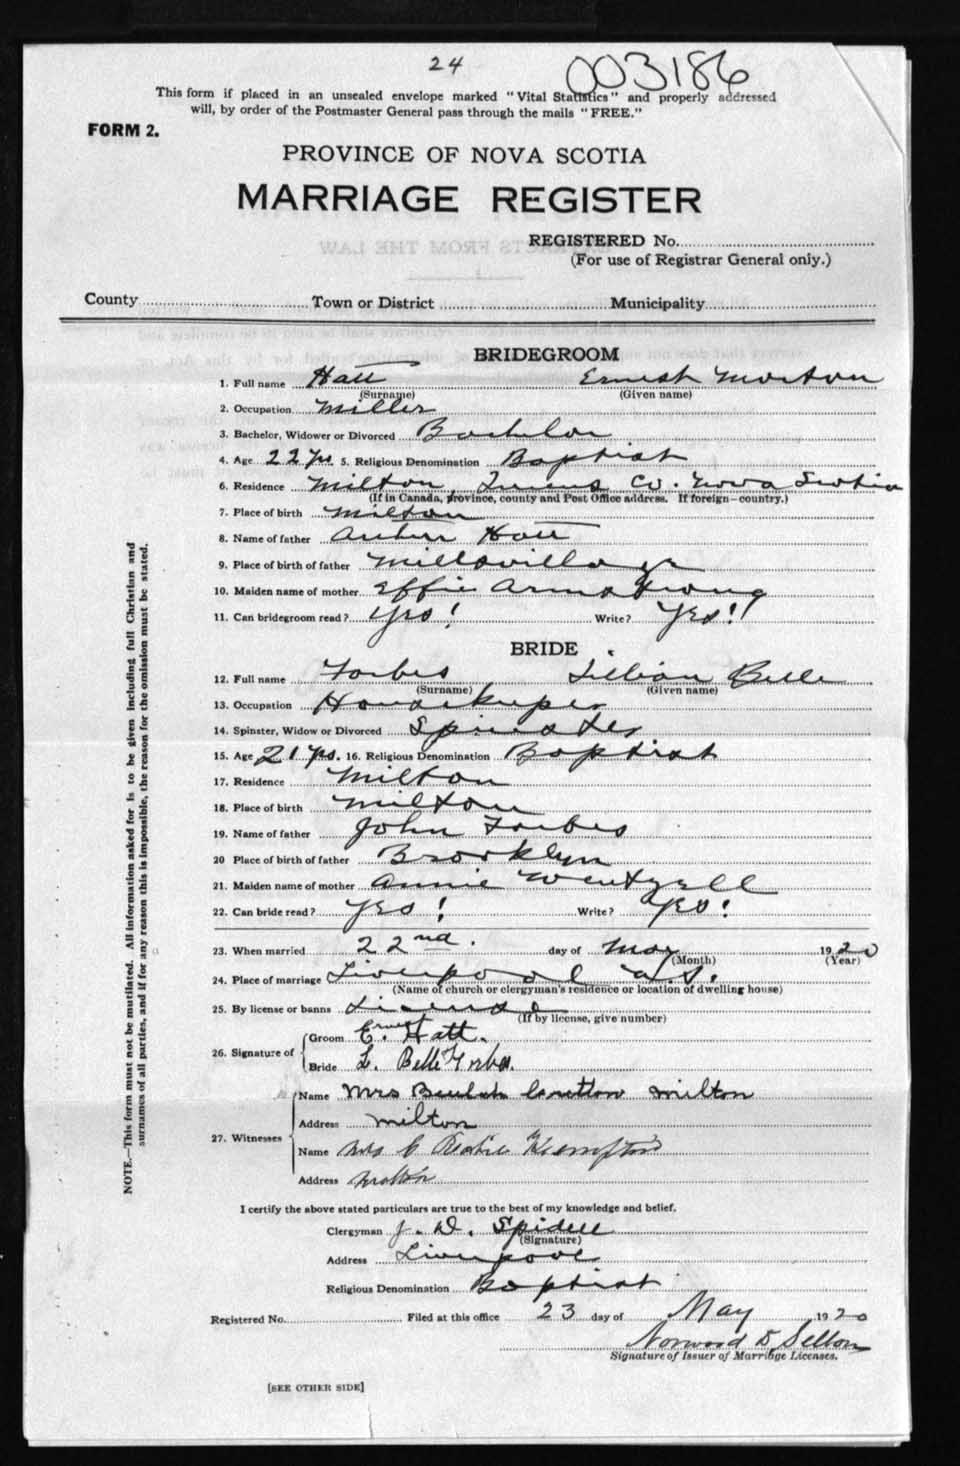 24
003186
This form if placed in an unsealed envelope marked "Vital Statistics" and properly addressed
will, by order of the Postmaster General pass through the mails "FREE."
FORM 2.
PROVINCE OF NOVA SCOTIA
MARRIAGE REGISTER
REGISTERED No.
(For use of Registrar General only.)
County Town or District Municipality
BRIDEGROOM
1. Full name Hatt Ernest Morton
(Surname) (Given name)
2. Occupation Miller
3. Bachelor, Widower or Divorced Bachelor
4. Age 22 yrs. 5. Religious Denomination Baptist
6. Residence Milton Queens Co. Nova Scotia
(If in Canada, province, county and Post Office address. If foreign—country.)
7. Place of birth Milton
8. Name of father Arthur Hatt
9. Place of birth of father Millsvillage
10. Maiden name of mother Effie Armstrong
11. Can bridegroom read? Yes! Write? Yes!
BRIDE
12. Full name Forbes Lillian Belle
(Surname) (Given name)
13. Occupation Housekeeper
14. Spinster, Widow or Divorced Spinster
15. Age 21 yrs. 16. Religious Denomination Baptist
17. Residence Milton
18. Place of birth Milton
19. Name of father John Forbes
20 Place of birth of father Brooklyn
21. Maiden name of mother Annie Wentzell
22. Can bride read? Yes! Write? Yes!
23. When married 22nd. day of May 1920
(Month) (Year)
24. Place of marriage Liverpool N.S.
(Name of church or clergyman's residence or location of dwelling house)
25. By license or banns License
(If by license, give number)
26. Signature of Groom E. Ernest Hatt.
Bride L. Belle Forbes.
27. Witnesses Name Mrs Beulah Milton
Address Milton
Name Mrs C Kempton
Address Milton
I certify the above stated particulars are true to the best of my knowledge and belief.
Clergyman J. D. Spidell
(Signature)
Address Liverpool
Religious Denomination Baptist
Registered No. Filed at this office 23 day of May 1920
Norwood D. Sellon
Signature of Issuer of Marriage Licenses.
[SEE OTHER SIDE]
NOTE.—This form must not be mutilated. All information asked for is to be given including full Christian and
surnames of all parties, and if for any reason this is impossible, the reason for the omission must be stated.